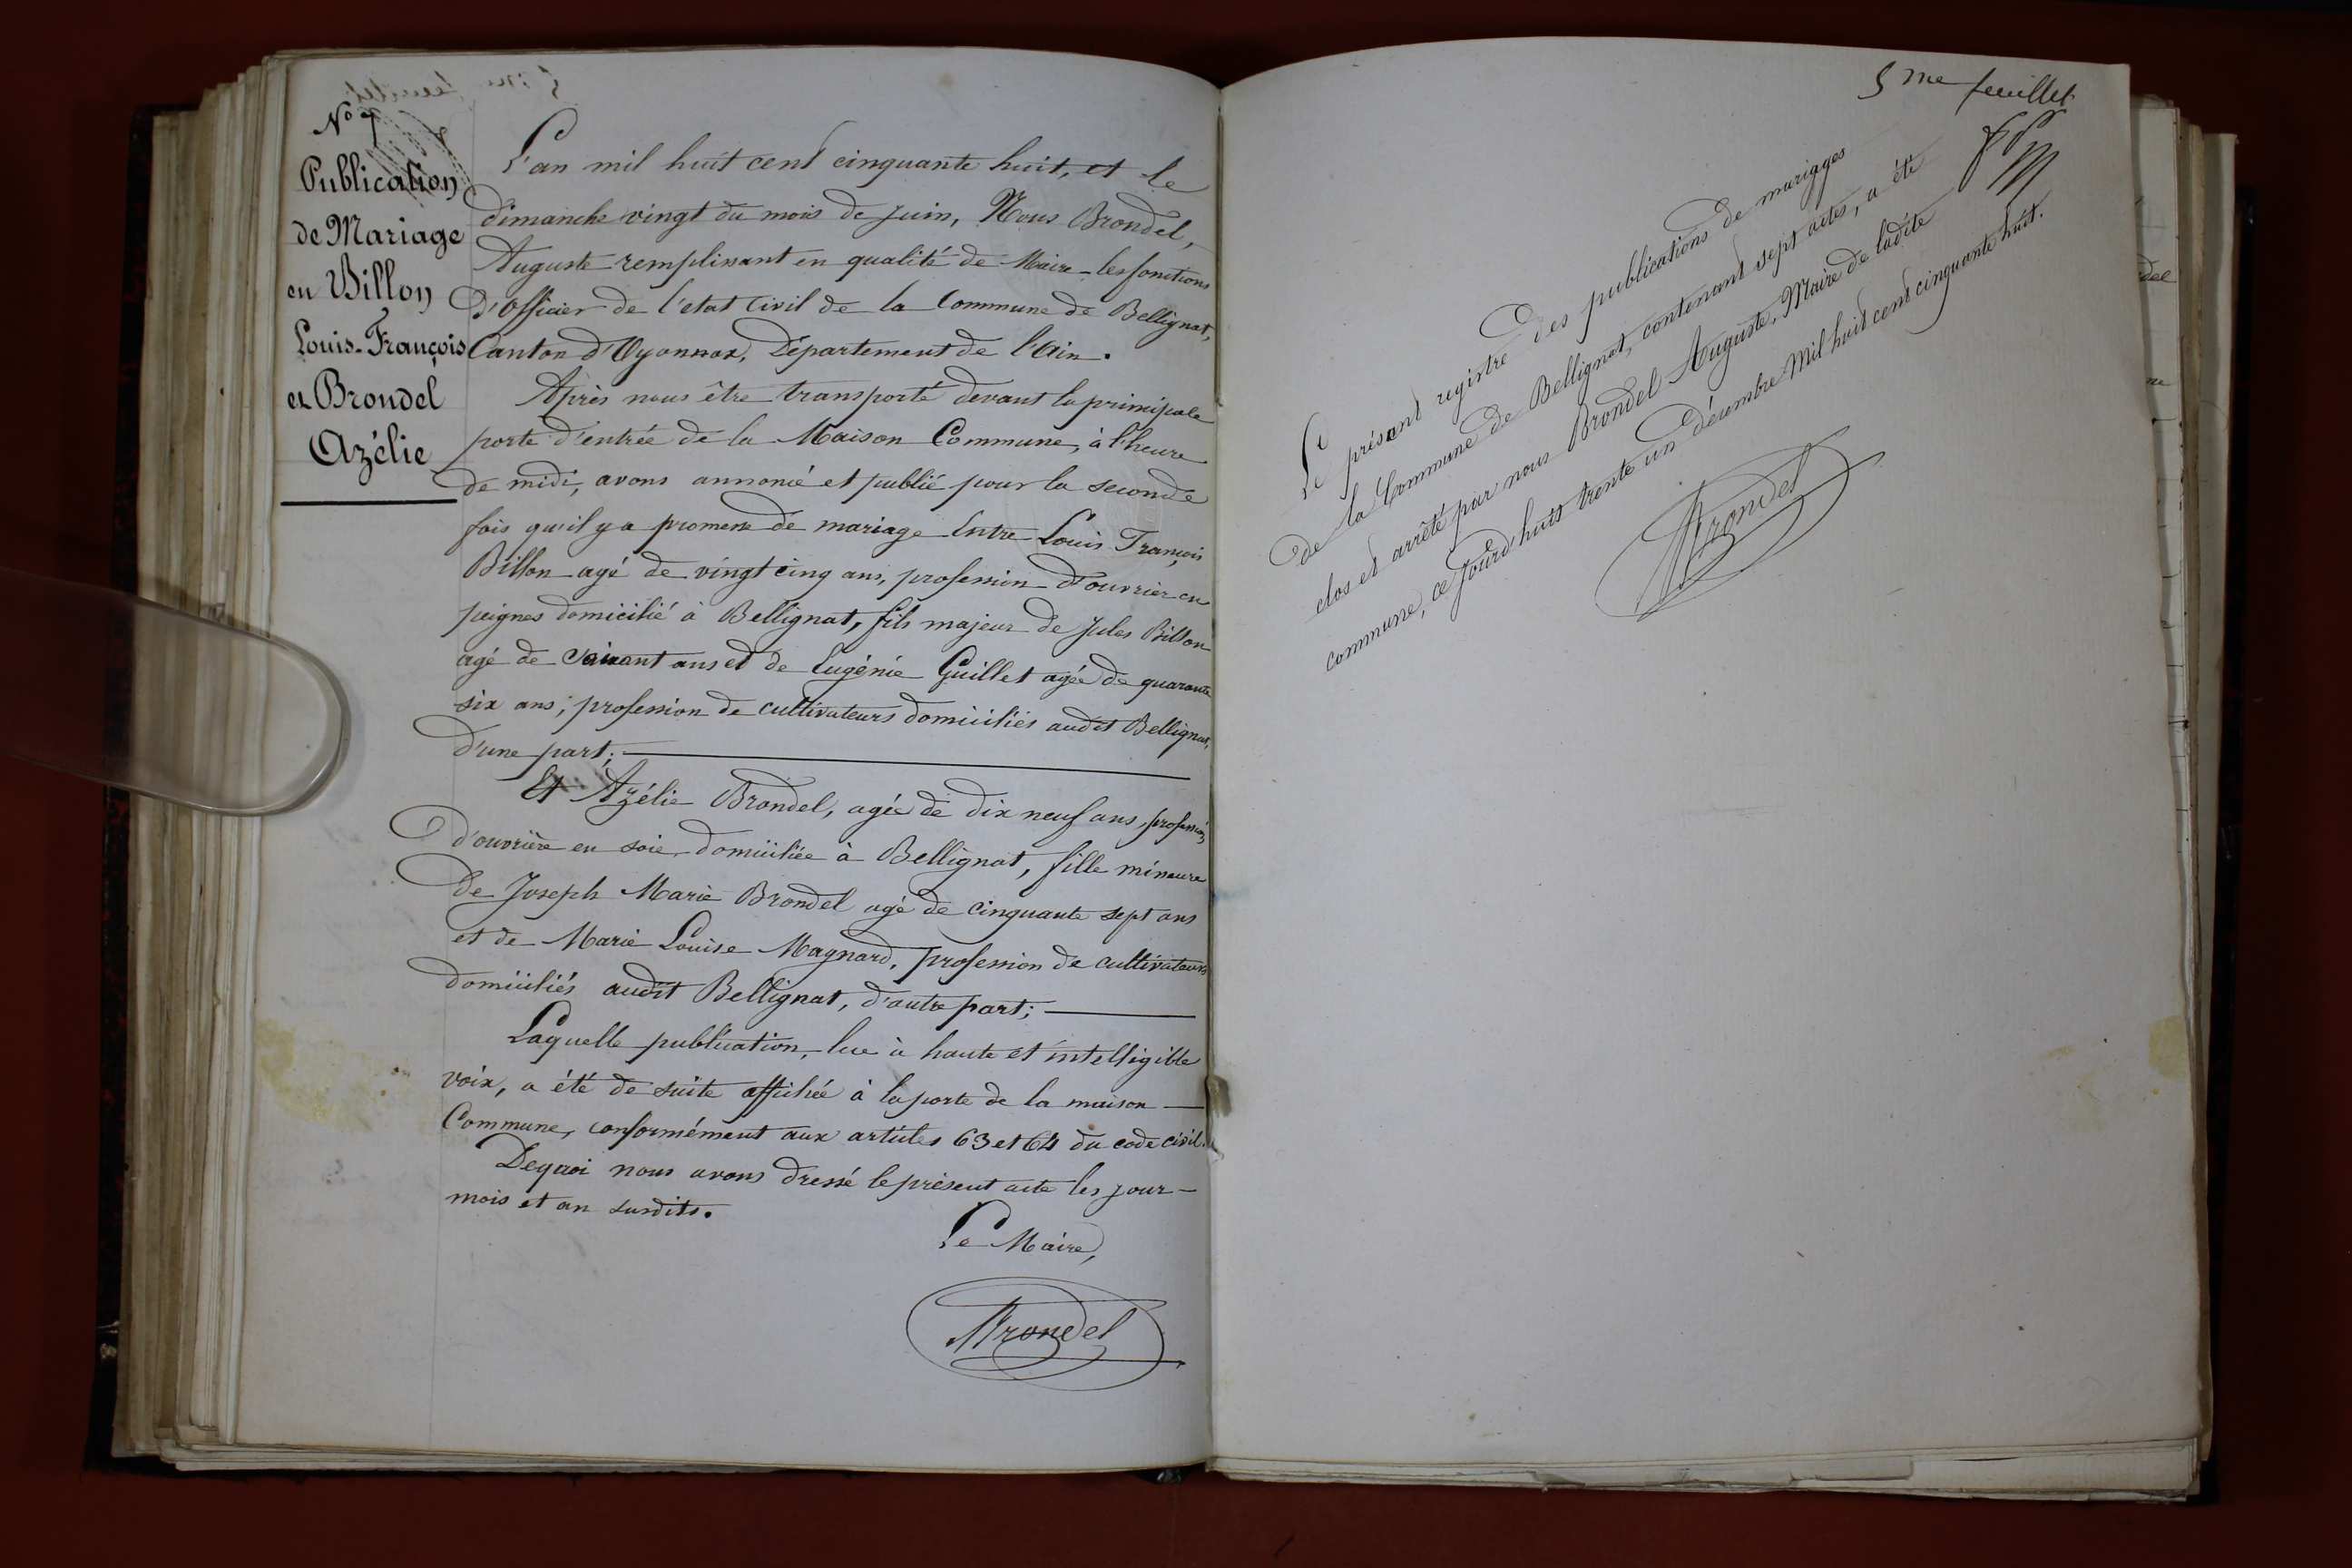 N° 7
Publication
de Mariage
en Billon
Louis-François
et Brondel
Azélie
L'an mil huit cent cinquante huit, et le
dimanche vingt du mois de Juin, Nous Brondel,
Auguste remplissant en qualité de Maire les fonctions
d'Officier de l'etat Civil de la Commune de Bellignat,
Canton d'Oyonnax, Département de l'Ain.
Après nous être transporté devant la principale
porte d'entrée de la Maison Commune, à l'heure
de midi, avons annoncé et publié pour la seconde
fois qu'il y a promesse de mariage Entre Louis François
Billon agé de vingt cinq ans, profession d'ouvrier en
peignes domicilié à Bellignat, fils majeur de Jules Billon
agé de soixant ans et de Eugénie Guillet agée de quarante
six ans, profession de cultivateurs domiciliés audit Bellignat,
d'une part;
Et Azélie Brondel, agée de dix neuf ans, profession
d'ouvrière en soie, domiciliée à Bellignat, fille mineure
de Joseph Marie Brondel agé de cinquante sept ans
et de Marie Louise Magnard, profession de cultivateurs
domiciliés audit Bellignat, d'autre part;
Laquelle publication, lue à haute et intelligible
voix, a été de suite affichée à la porte de la maison
Commune, conformément aux articles 63 et 64 du code civil.
De quoi nous avons dressé le présent acte les jour
mois et an susdits.
Le Maire,
Brondel
5me feuillet
Le présent registre des publications de mariages
de la Commune de Bellignat, contenant sept actes, a été
clos et arrêté par nous Brondel Auguste, Maire de ladite
commune, ce jourd'huit trente un décembre Mil huit cent cinquante huit.
Brondel